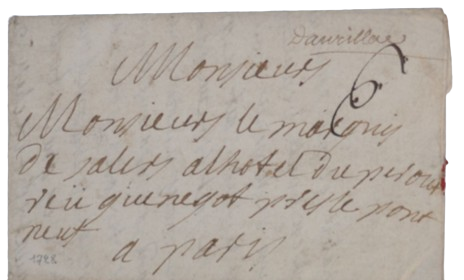 Daurillac
Monsieurs
Monsieurs le marquis
de salers alhotel du perou
reüe guenegot pres le pont
neuf
a paris